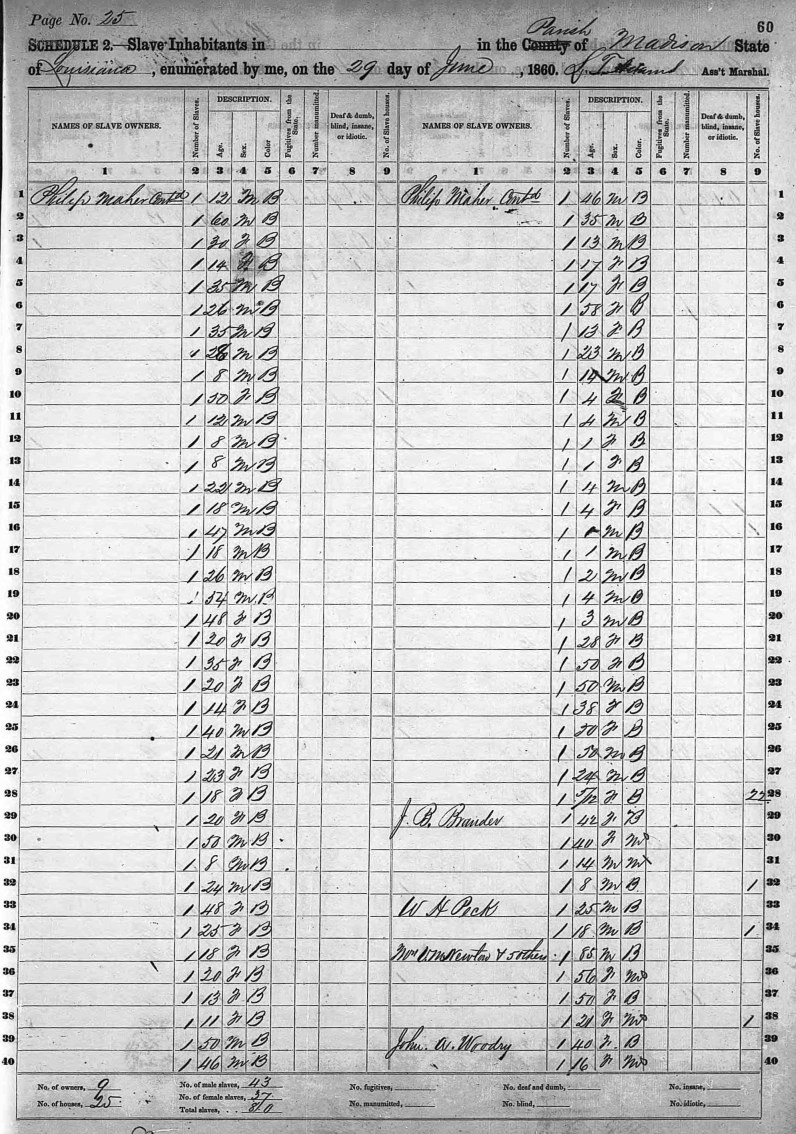 Page No. 25
60
SCHEDULE 2.—Slave Inhabitants in in the County Parish of Madison State
of Louisiana, enumerated by me, on the 29 day of June, 1860. Ass't Marshal.
NAMES OF SLAVE OWNERS. Number of Slaves. DESCRIPTION. Age. Sex. Color. Fugitives from the State. Number manumitted. Deaf & dumb, blind, insane, or idiotic. No. of Slave houses. NAMES OF SLAVE OWNERS. Number of Slaves. DESCRIPTION. Age. Sex. Color. Fugitives from the State. Number manumitted. Deaf & dumb, blind, insane, or idiotic. No. of Slave houses.
1 2 3 4 5 6 7 8 9 1 2 3 4 5 6 7 8 9
1 Philip Maher Contd 1 12 M B Philip Maher Contd 1 46 M B 1
2 1 60 M B 1 35 M B 2
3 1 30 F B 1 13 M B 3
4 1 14 F B 1 17 F B 4
5 1 35 M B 1 17 F B 5
6 1 26 M B 1 58 F B 6
7 1 35 M B 1 13 F B 7
8 1 28 M B 1 23 M B 8
9 1 8 M B 1 14 M B 9
10 1 50 F B 1 4 F B 10
11 1 12 M B 1 4 M B 11
12 1 8 M B 1 1 F B 12
13 1 8 M B 1 1 F B 13
14 1 22 M B 1 4 M B 14
15 1 18 M B 1 4 F B 15
16 1 47 M B 1 M B 16
17 1 18 M B 1 1 M B 17
18 1 26 M B 1 2 M B 18
19 1 54 M B 1 4 M B 19
20 1 48 F B 1 3 M B 20
21 1 20 F B 1 28 F B 21
22 1 35 F B 1 50 F B 22
23 1 20 F B 1 50 M B 23
24 1 14 F B 1 38 F B 24
25 1 40 M B 1 50 F B 25
26 1 21 M B 1 50 M B 26
27 1 23 F B 1 24 M B 27
28 1 18 F B 1 5/12 F B 22 28
29 1 20 F B J. B. Brander 1 42 F B 29
30 1 50 M B 1 40 F M 30
31 1 8 M B 1 14 M M 31
32 1 24 M B 1 8 M B 1 32
33 1 48 F B W H Peck 1 25 M B 33
34 1 25 F B 1 18 M B 1 34
35 1 18 F B Newton & 5 others 1 85 M B 35
36 1 20 F B 1 56 F M 36
37 1 13 F B 1 50 F B 37
38 1 11 F B 1 21 F M 1 38
39 1 50 M B John. A. Woodry 1 40 F B 39
40 1 46 M B 1 16 F M 40
No. of owners, 9 No. of male slaves, 43 No. fugitives, No. deaf and dumb, No. insane,
No. of houses, 25 No. of female slaves, 37 No. manumitted, No. blind, No. idiotic,
Total slaves, 80